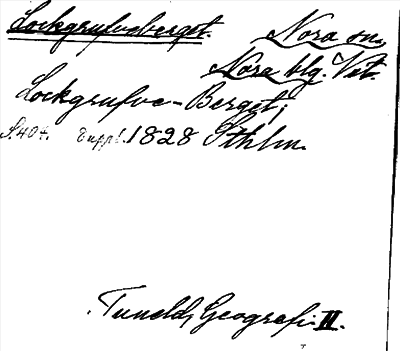 Lockgrufveberget. Nora sn,
Nora blg. Vst.
Lockgrufve-Berget;
S. 404. Suppl. 1828 Sthlm.
Tuneld, Geografi II.